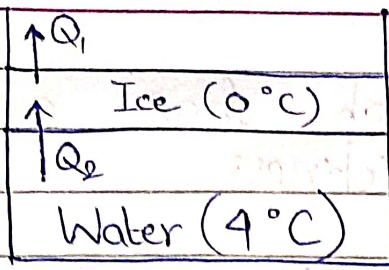 Q₁
Ice (0°C)
Q₂
Water (4°C)